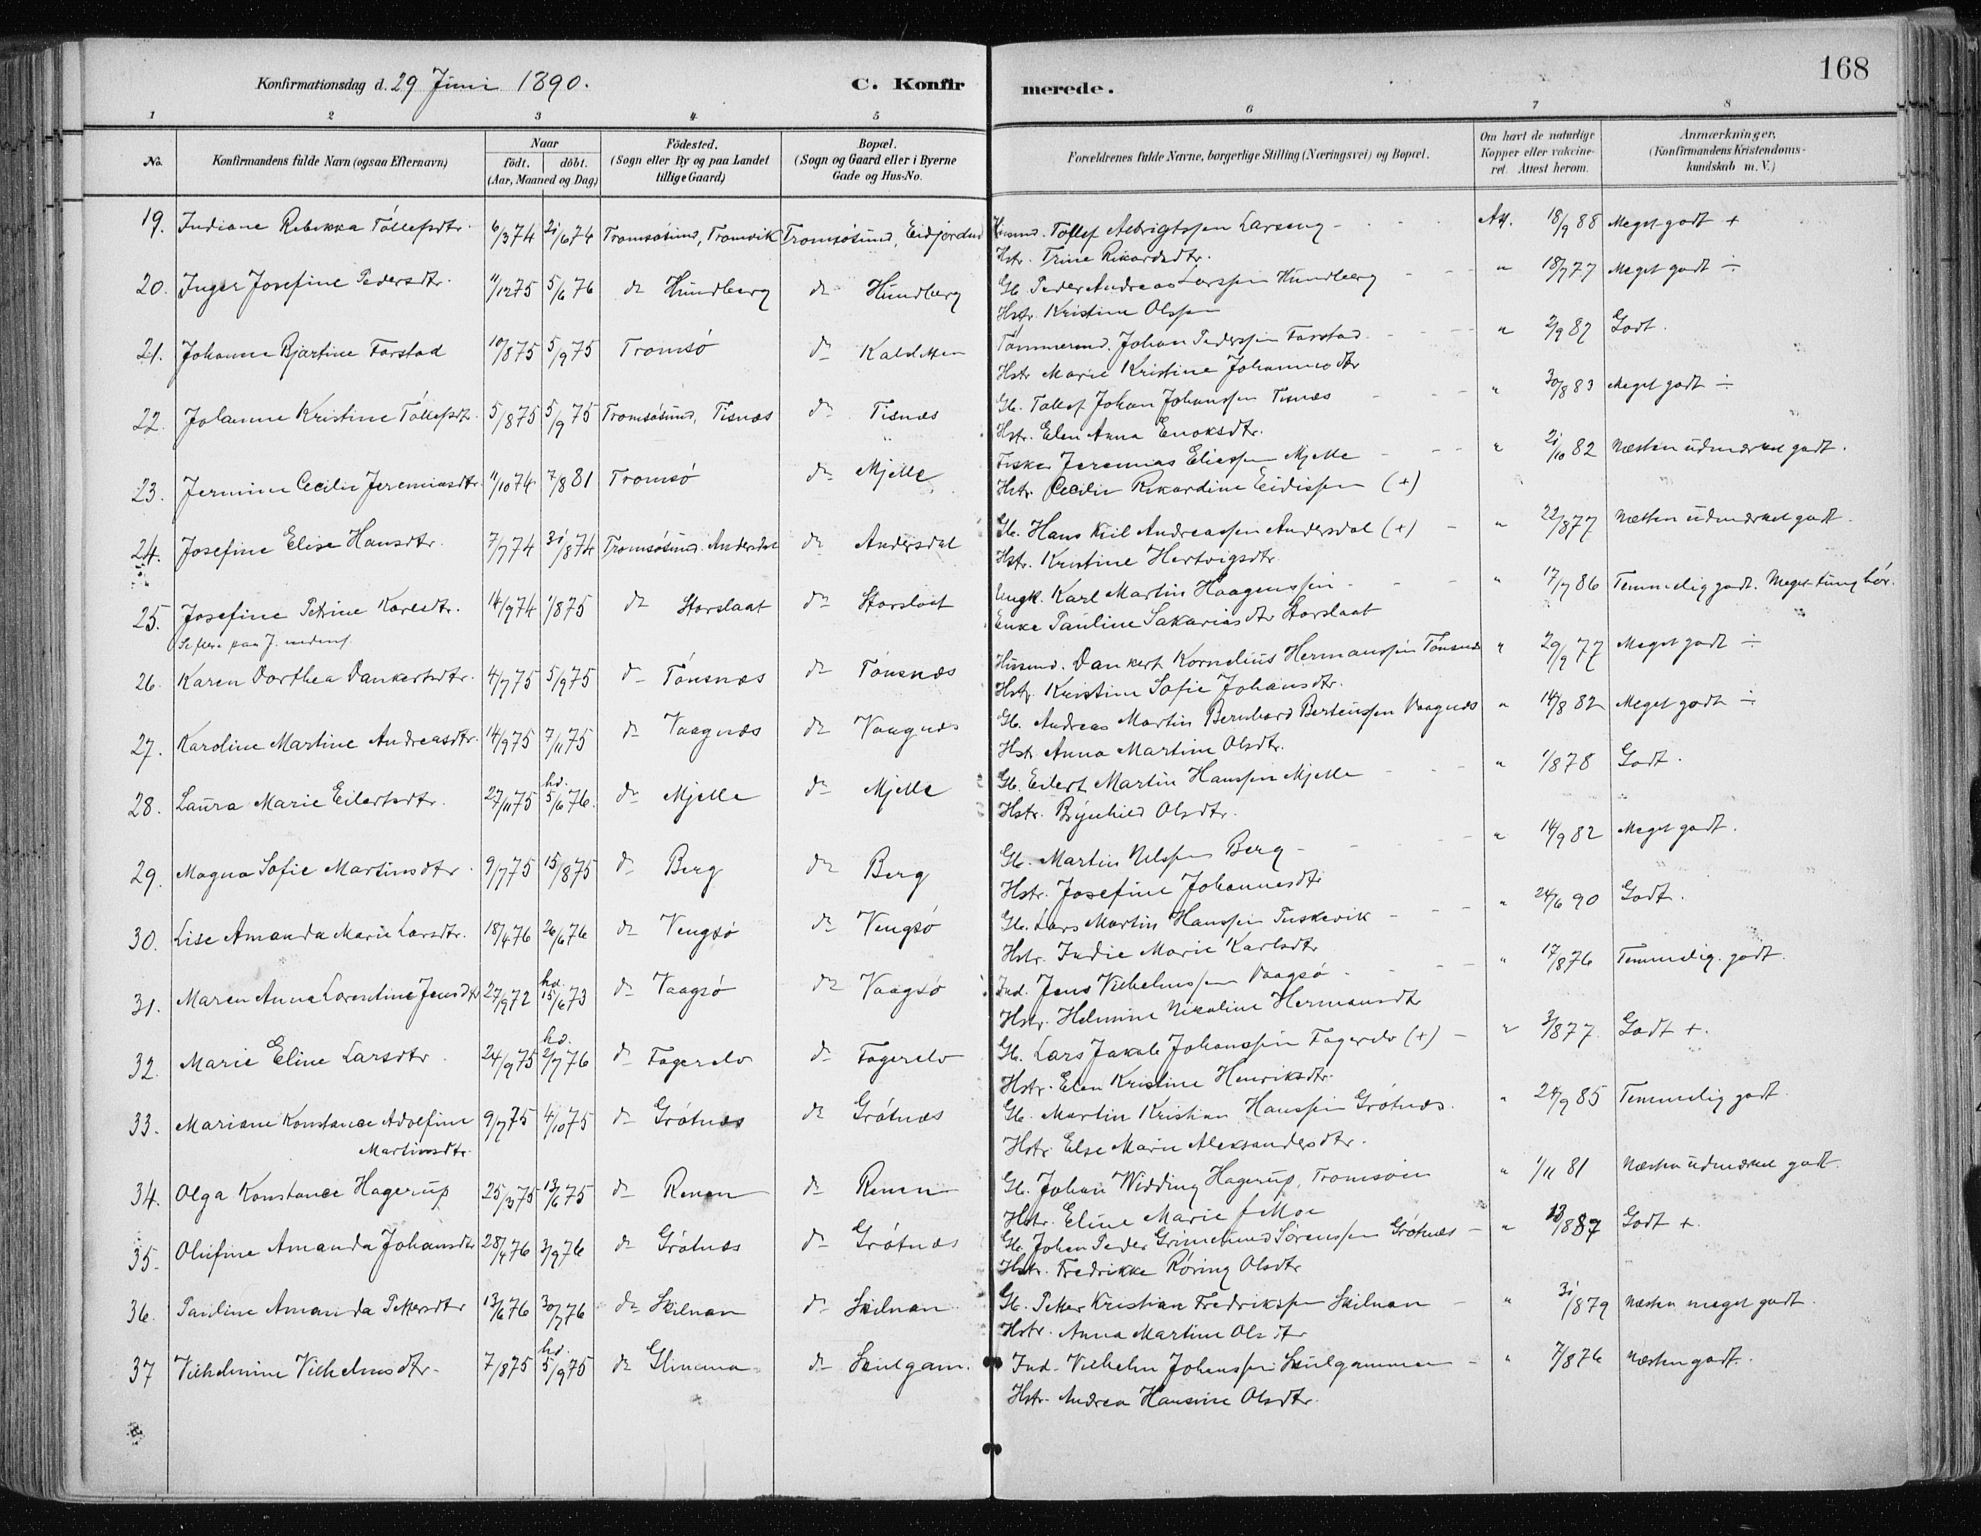 168
Konfirmationsdag d. 29 Juni 1890. C. Konfirmerede.
1 2 3 4 5 6 7 8
No. Konfirmandens fulde Navn (ogsaa Efternavn) Naar födt. döbt. (Aar, Maaned og Dag) Födested. (Sogn eller By og paa Landet tillige Gaard) Bopæl. (Sogn og Gaard eller i Byerne Gade og Hus-No. Forældrenes fulde Navne, borgerlige Stilling (Næringsvei) og Bopæl. Om havt de naturlige Kopper eller vakcineret. Attest herom. Anmærkninger. (Konfirmandens Kristendomskundskab m. V.)
19. Indiane Rebekka Tóllefsdtr. 6/3 74 21/6 74 Tromsósund, Tromvik Tromsósund, Eidjorden Husmd. Tollef Albrigtssen Larseng Att. 18/9 88 Meget godt +
Hstr. Trine Rikardsdtr.
20. Inger Josefine Pedersdtr. 11/12 75 5/6 76 do Hundberg do Hundberg Gb. Peder Andreas Larssen Hundberg " 18/7 77 Meget godt ÷
Hstr. Kristine Olssen
21. Johanne Bjartine Forstad 10/8 75 5/9 75 Tromsó do Kaldsletten Tómmermd. Johan Pederssen Forstad " 2/9 82 Godt.
Hstr Marie Kristine Johannesdtr
22. Johanne Kristine Tóllefsdt. 5/8 75 5/9 75 Tromsósund, Tisnæs do Tisnæs Gb. Tollef Johan Johanssen Tisnæs " 30/8 83 Meget godt ÷
Hstr. Elen Anna Enoksdtr.
23. Jermine Cecilie Jeremiasdtr 11/10 74 7/8 81 Tromsó do Mjelle Fisker Jeremias Eliessen Mjelle " 21/10 82 Næsten udmærket godt.
Hstr. Cecilie Rikardine Eidissen (+)
24. Josefine Elise Hansdtr. 7/7 74 31/8 74 Tromsósund. Andersdal do Andersdal Gb. Hans Kiil Andreassen Andersdal (+) " 22/8 77 Næsten udmærket godt.
Hstr. Kristine Hertvigsdtr.
25. Josefine Petrine Karlsdtr. 14/9 74 1/8 75 do Storslaat do Storslaat Ungk. Karl Martin Haagenssen " 17/7 86 Temmelig godt. Meget tunghór.
Enke Pauline Sakariasdtr Storslaat
26. Karen Dorthea Dankertsdtr. 4/7 75 5/9 75 do Tónsnæs do Tónsnæs Husmd. Dankert Kornelius Hermanssen Tónsnæs " 29/9 77 Meget godt ÷
Hstr. Kristine Sofie Johansdtr.
27. Karoline Martine Andreasdtr. 14/9 75 7/11 75 do Vaagnæs do Vaagnæs Gb. Andreas Martin Bernhard Bertenssen Vaagnæs " 14/8 82 Meget godt ÷
Hstr. Anna Martine Olsdtr.
28. Laura Marie Eilertsdtr. 27/11 75 hd. 5/6 76. do Mjelle do Mjelle Gb. Eilert Martin Hanssen Mjelle " 1/8 78 Godt.
Hstr. Brynhild Olsdtr.
29. Magna Sofie Martinsdtr. 9/7 75 15/8 75 do Berg do Berg Gb. Martin Nilssen Berg " 14/9 82 Meget godt.
Hstr. Josefine Johannesdtr
30. Lise Amanda Marie Larsdtr. 18/4 76 26/6 76 do Vengsó do Vengsó Gb. Lars Martin Hanssen Tuskevik " 24/6 90 Godt.
Hstr. Indie Marie Karlsdtr
31. Maren Anna Lorentine Jensdtr 27/9 72 hd. 15/6 73 do Vaagsó do Vaagsó Ind. Jens Vilhelmssen Vaagsó " 17/8 76 Temmelig godt.
Hstr. Helmine Nikoline Hermansdtr
32. Marie Eline Larsdtr. 24/9 75 hd. 2/7 76 do Fagerelv do Fagerelv Gb. Lars Jakob Johanssen Fagerelv (+) " 3/8 77. Godt +.
Hstr. Elen Kristine Henriksdtr.
33. Mariane Konstance Adolfine Martinsdtr. 9/7 75 4/10 75 do Grótnæs do Grótnæs Gb. Martin Kristian Hanssen Grótnæs. " 24/9 85 Temmelig godt
Hstr. Else Marie Aleksandersdtr.
34. Olga Konstance Hagerup 25/3 75 13/6 75 do Renen do Renen Gb. Johan Widding Hagerup, Tromsóen " 1/11 81 Næsten udmærket godt.
Hstr. Eline Marie f Moe
35. Olufine Amanda Johansdtr 28/4 76 3/9 76 do Grótnæs do Grótnæs Gb. Johan Peder Grimelund Sórenssen Grótnæs " 13/8 87 Godt +.
Hstr. Fredrikke Róring Olsdtr
36. Pauline Amanda Petersdtr 13/6 76 30/7 76 do Skilnan do Skilnan Gb. Peter Kristian Fredrikssen Skilnan " 31/8 79 Næsten meget godt.
Hstr. Anna Martine Olsdtr
37 Vilhelmine Vilhelmsdtr. 7/8 75 hd. 5/9 75 do Glimma do Skulgam. Ind. Vilhelm Johanssen Skulgammen " 7/8 76 Næsten godt.
Hstr. Andrea Hansine Olsdtr.